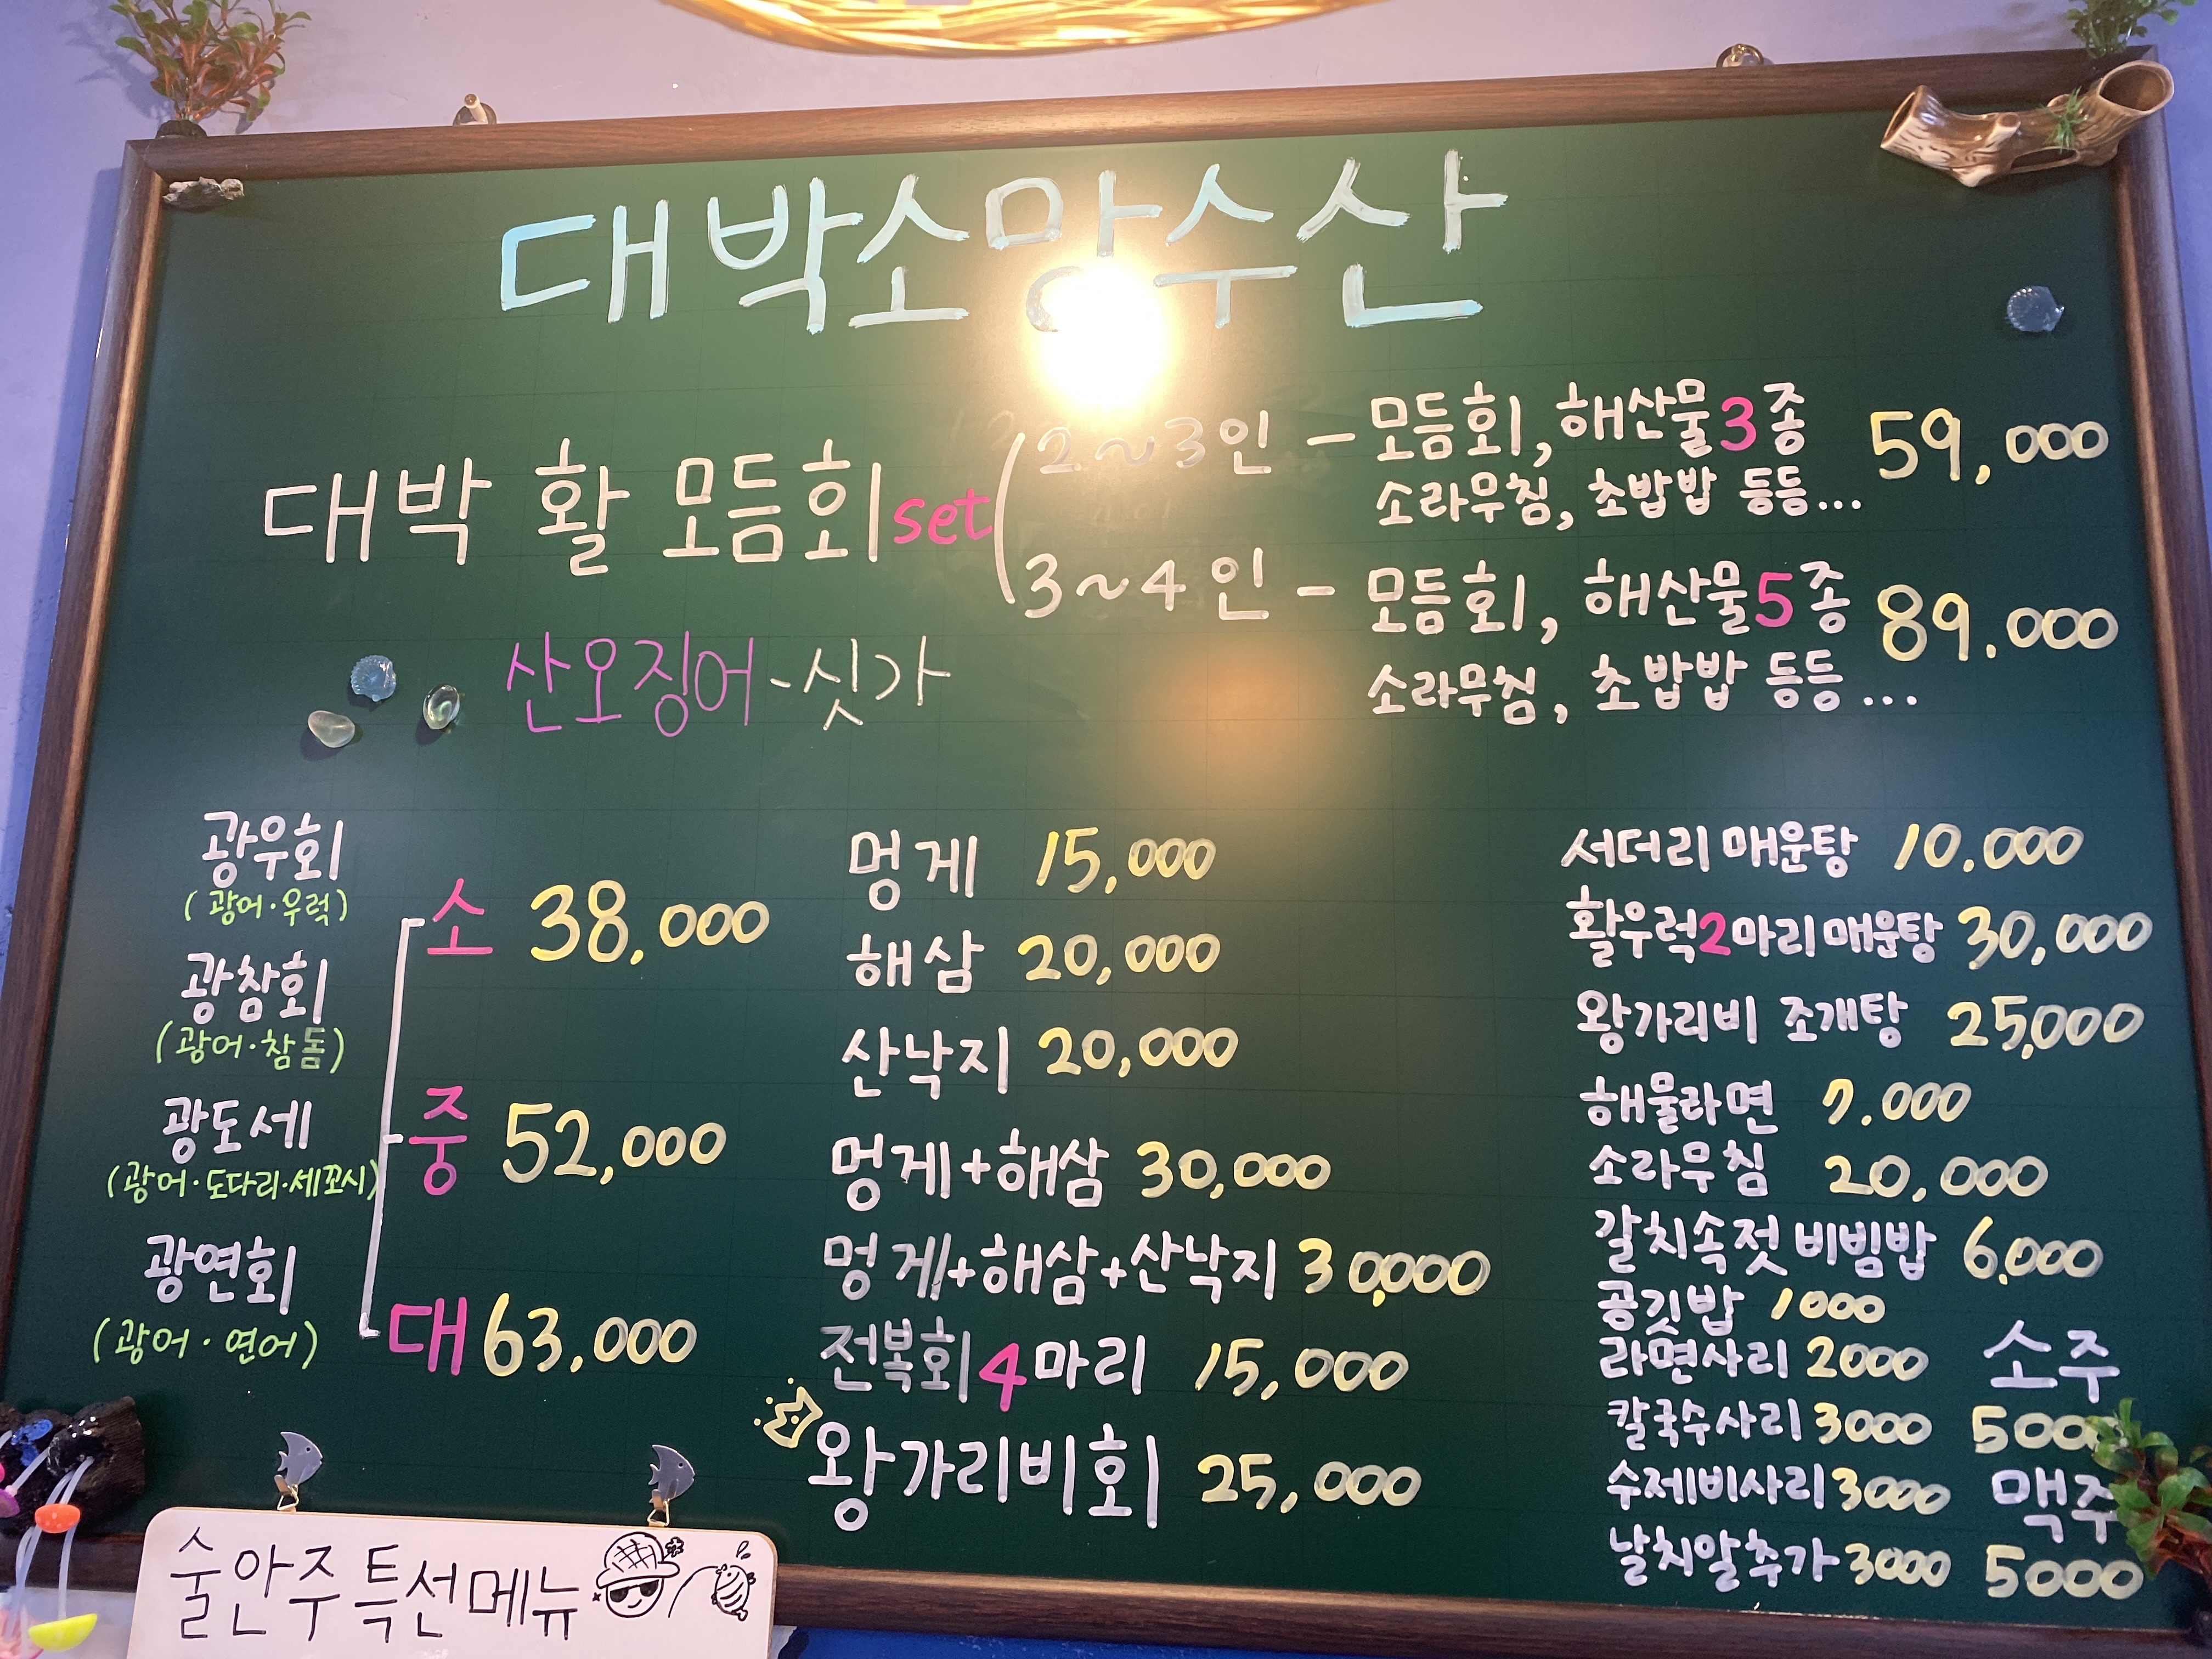 대박소망수산
대박 활 모듬회 set
2~3인 - 모듬회, 해산물3종 59,000
소라무침, 초밥밥 등등...
3~4인 - 모듬회, 해산물5종 89.000
소라무침, 초밥밥 등등...
산오징어 - 싯가
광우회
(광어·우럭)
광참회
(광어·참돔)
광도세
(광어·도다리·세꼬시)
광연회
(광어·연어)
소 38,000
중 52,000
대 63,000
멍게 15,000
해삼 20,000
산낙지 20,000
멍게+해삼 30,000
멍게+해삼+산낙지 30,000
전복회4마리 15,000
왕가리비회 25,000
서더리 매운탕 10.000
활우럭2마리 매운탕 30,000
왕가리비 조개탕 25,000
해물라면 7.000
소라무침 20,000
갈치속젓 비빔밥 6,000
공깃밥 1000
라면사리 2000
칼국수사리 3000
수제비사리 3000
날치알추가 3000
소주
5000
맥주
5000
술안주 특선메뉴